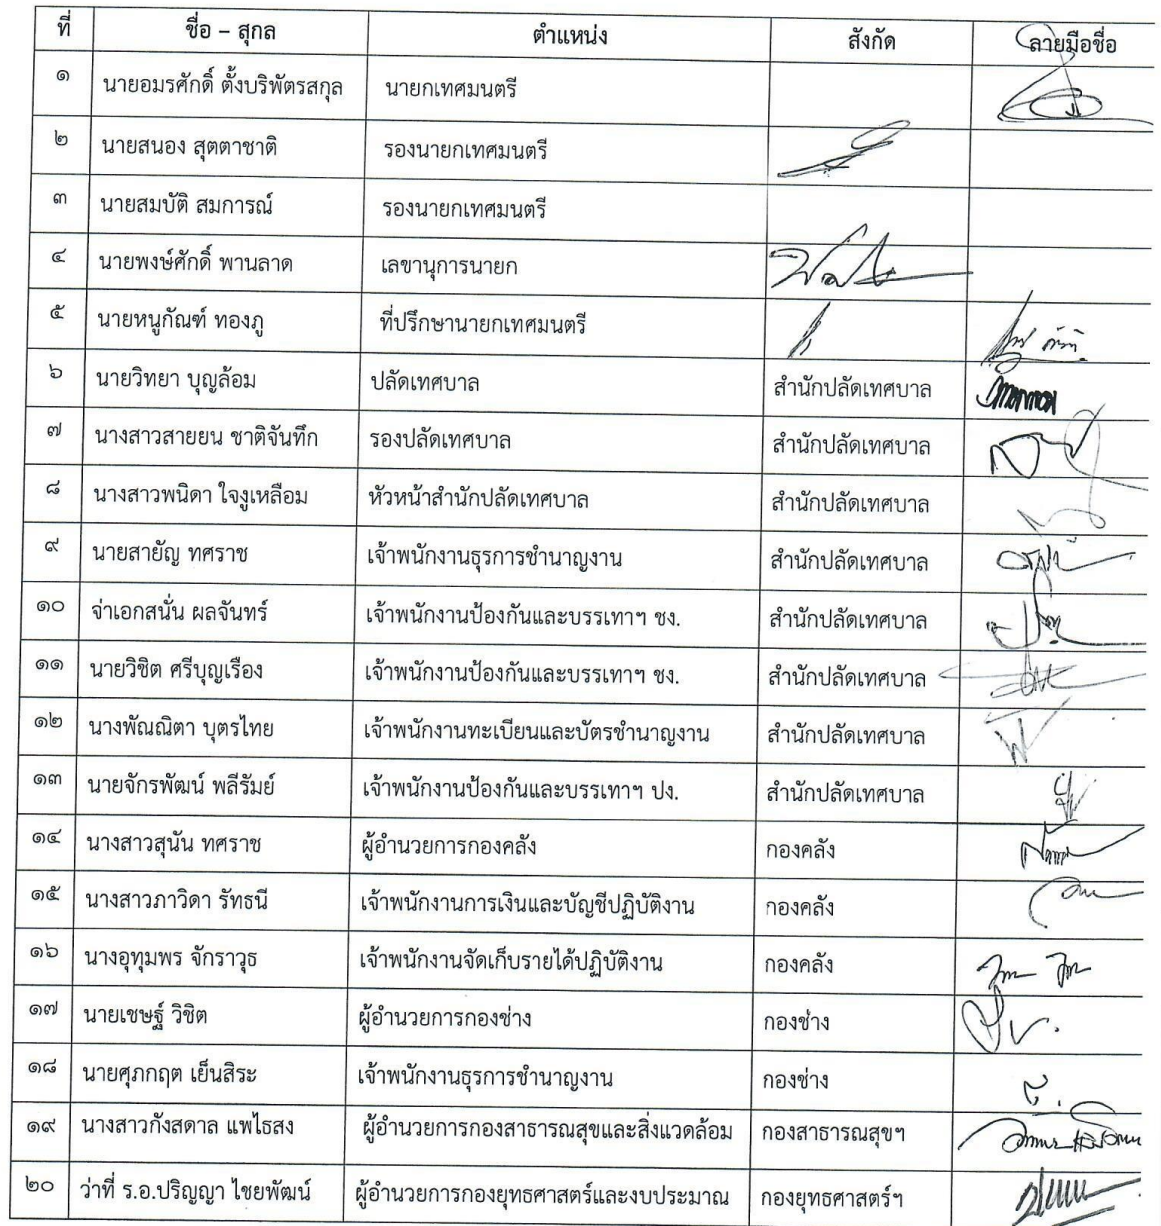 ที่ ชื่อ – สุกล ตำแหน่ง สังกัด ลายมือชื่อ
๑ นายอมรศักดิ์ ตั้งบริพัตรสกุล นายกเทศมนตรี
๒ นายสนอง สุตตาชาติ รองนายกเทศมนตรี
๓ นายสมบัติ สมการณ์ รองนายกเทศมนตรี
๔ นายพงษ์ศักดิ์ พานลาด เลขานุการนายก
๕ นายหนูกัณฑ์ ทองภู ที่ปรึกษานายกเทศมนตรี
๖ นายวิทยา บุญล้อม ปลัดเทศบาล สำนักปลัดเทศบาล
๗ นางสาวสายยน ชาติจันทึก รองปลัดเทศบาล สำนักปลัดเทศบาล
๘ นางสาวพนิดา ใจงูเหลือม หัวหน้าสำนักปลัดเทศบาล สำนักปลัดเทศบาล
๙ นายสายัญ ทศราช เจ้าพนักงานธุรการชำนาญงาน สำนักปลัดเทศบาล
๑๐ จ่าเอกสนั่น ผลจันทร์ เจ้าพนักงานป้องกันและบรรเทาฯ ชง. สำนักปลัดเทศบาล
๑๑ นายวิชิต ศรีบุญเรือง เจ้าพนักงานป้องกันและบรรเทาฯ ชง. สำนักปลัดเทศบาล
๑๒ นางพัณณิตา บุตรไทย เจ้าพนักงานทะเบียนและบัตรชำนาญงาน สำนักปลัดเทศบาล
๑๓ นายจักรพัฒน์ พลีรัมย์ เจ้าพนักงานป้องกันและบรรเทาฯ ปง. สำนักปลัดเทศบาล
๑๔ นางสาวสุนัน ทศราช ผู้อำนวยการกองคลัง กองคลัง
๑๕ นางสาวภาวิดา รัทธนี เจ้าพนักงานการเงินและบัญชีปฏิบัติงาน กองคลัง
๑๖ นางอุทุมพร จักราวุธ เจ้าพนักงานจัดเก็บรายได้ปฏิบัติงาน กองคลัง
๑๗ นายเชษฐ์ วิชิต ผู้อำนวยการกองช่าง กองช่าง
๑๘ นายศุภกฤต เย็นสิระ เจ้าพนักงานธุรการชำนาญงาน กองช่าง
๑๙ นางสาวกังสดาล แพไธสง ผู้อำนวยการกองสาธารณสุขและสิ่งแวดล้อม กองสาธารณสุขฯ
๒๐ ว่าที่ ร.อ.ปริญญา ไชยพัฒน์ ผู้อำนวยการกองยุทธศาสตร์และงบประมาณ กองยุทธศาสตร์ฯ